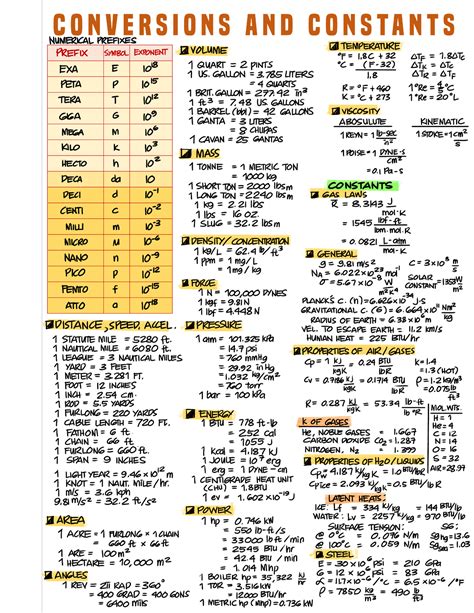 CONVERSIONS AND CONSTANTS
NUMERICAL PREFIXES
PREFIX SYMBOL EXPONENT
EXA E 10¹⁸
PETA P 10¹⁵
TERA T 10¹²
GIGA G 10⁹
MEGA M 10⁶
KILO K 10³
HECTO h 10²
DECA da 10
DECI d 10⁻¹
CENTI c 10⁻²
MILLI m 10⁻³
MICRO M 10⁻⁶
NANO n 10⁻⁹
PICO p 10⁻¹²
FEMTO f 10⁻¹⁵
ATTO a
DISTANCE, SPEED, ACCEL.
1 STATUTE MILE = 5280 ft.
1 NAUTICAL MILE = 6080 ft.
1 LEAGUE = 3 NAUTICAL MILES
1 YARD = 3 FEET
1 METER = 3.281 FT.
1 FOOT = 12 INCHES
1 INCH = 2.54 cm
1 ROD = 5.5 YARDS
1 FURLONG = 220 YARDS
1 CABLE LENGTH = 720 FT.
1 FATHOM = 6 ft.
1 CHAIN = 66 ft
1 FURLONG = 660 ft.
1 SPAN = 9 INCHES
1 LIGHT YEAR = 9.46 × 10¹² m
1 KNOT = 1 NAUT. MILE/HR
1 m/s = 3.6 kph
9.81 m/s² = 32.2 ft/s²
AREA
1 ACRE = 1 FURLONG × 1 CHAIN
= 660 ft × 66 ft
1 ARE = 100 m²
1 HECTARE = 10,000 m²
ANGLES
1 REV = 2π RAD = 360°
= 400 GRAD = 400 gons
= 6400 mils
VOLUME
1 QUART = 2 PINTS
1 U.S. GALLON = 3.785 LITERS
= 4 QUARTS
1 BRIT. GALLON = 277.42 in³
1 ft³ = 7.48 US. GALLONS
1 BARREL (bbl) = 42 GALLONS
1 GANTA = 3 LITERS
= 8 CHUPAS
1 CAVAN = 25 GANTAS
MASS
1 TONNE = 1 METRIC TON
= 1000 kg
1 SHORT TON = 2000 lbsm
1 LONG TON = 2240 lbsm
1 kg = 2.21 lbs
1 lbs = 16 oz.
1 SLUG = 32.2 lbs
DENSITY/CONCENTRATION
1 kg/L = 62.4 lb/ft³
1 ppm = 1 mg/L
= 1 mg/kg
FORCE
1 N = 100,000 DYNES
1 kgf = 9.81 N
1 lbf = 4.448 N
PRESSURE
1 atm = 101.325 kPa
= 14.7 psi
= 760 mmHg
= 29.92 in Hg
= 1.032 kg/cm²
= 760 torr
1 bar = 100 kPa
ENERGY
1 BTU = 778 ft-lb
= 252 cal
= 1055 J
1 kcal = 4.187 kJ
1 JOULE = 10⁷ erg
1 erg = 1 DYNE-cm
1 CENTIGRADE HEAT UNIT
(CHU) = 1.8 BTU
1 ev = 1.602 × 10⁻¹⁹ J
POWER
1 hp = 0.746 kW
= 550 lb-ft/s
= 33000 lb-ft/min
= 2545 BTU/hr
= 42.4 BTU/min
= 1.014 Mhp
1 BOILER hp = 35,322 kJ/hr
1 TOR = 3.516 kW
= 12000 BTU/hr
1 METRIC hp (Mhp) = 0.736 kW
TEMPERATURE
°F = 1.8C + 32
°C = (F-32)
1.8
°R = °F + 460
K = °C + 273
ΔTF = 1.8ΔTC
ΔTK = ΔTC
ΔTR = ΔTF
VISCOSITY
ABSOULUTE KINEMATIC
1 REYN = 1 lb-sec
in²
1 POISE = 1 DYNE-S
cm²
= 0.1 Pa-s
1 STOKE = 1 cm²
s
CONSTANTS
GAS LAWS
R = 8.3143 J
mol·K
= 1545 lbf-ft
mol·R
= 0.0821 L-atm
mol·K
GENERAL
g = 9.81 m/s²
C = 3 × 10⁸ m
s
NA = 6.022 × 10²³ mol⁻¹
σ = 5.67 × 10⁻⁸ W
m²K⁴
SOLAR
CONSTANT
PLANCK'S C. (h) = 6.626 × 10⁻³⁴ J-s
GRAVITATIONAL C. (G) =
RADIUS OF EARTH =
VEL. TO ESCAPE EARTH = 11.2 km/s
HUMAN HEAT = 225 BTU/hr
PROPERTIES OF AIR / GASES
Cp = 1 kJ
kgK
= 0.24 BTU
lbR
k = 1.4
= 1.3 (HOT)
Cv = 0.716 kJ
kgK
= 0.1714 BTU
lbR
ρ = 1.2 kg/m³
R = 0.287 kJ
kgK
= 53.34 lb-ft
lbR
K OF GASES
He, NOBLE GASES = 1.667
CARBON DIOXIDE CO₂ = 1.287
NITROGEN, N₂ = 1.399
MOL.WTS.
H = 1
He = 4
C = 12
N = 14
O = 16
S = 32
PROPERTIES OF H₂O/LIQUIDS
LATENT HEATS:
ICE: Lf = 334 kJ/kg = 144 BTU/lb
WATER: Lv = 2257 kJ/kg = 970 BTU/lb
SURFACE TENSION: SG:
@ 0°C = 0.076 N/m SgHg = 13.6
@ 100°C = 0.059 N/m
STEEL